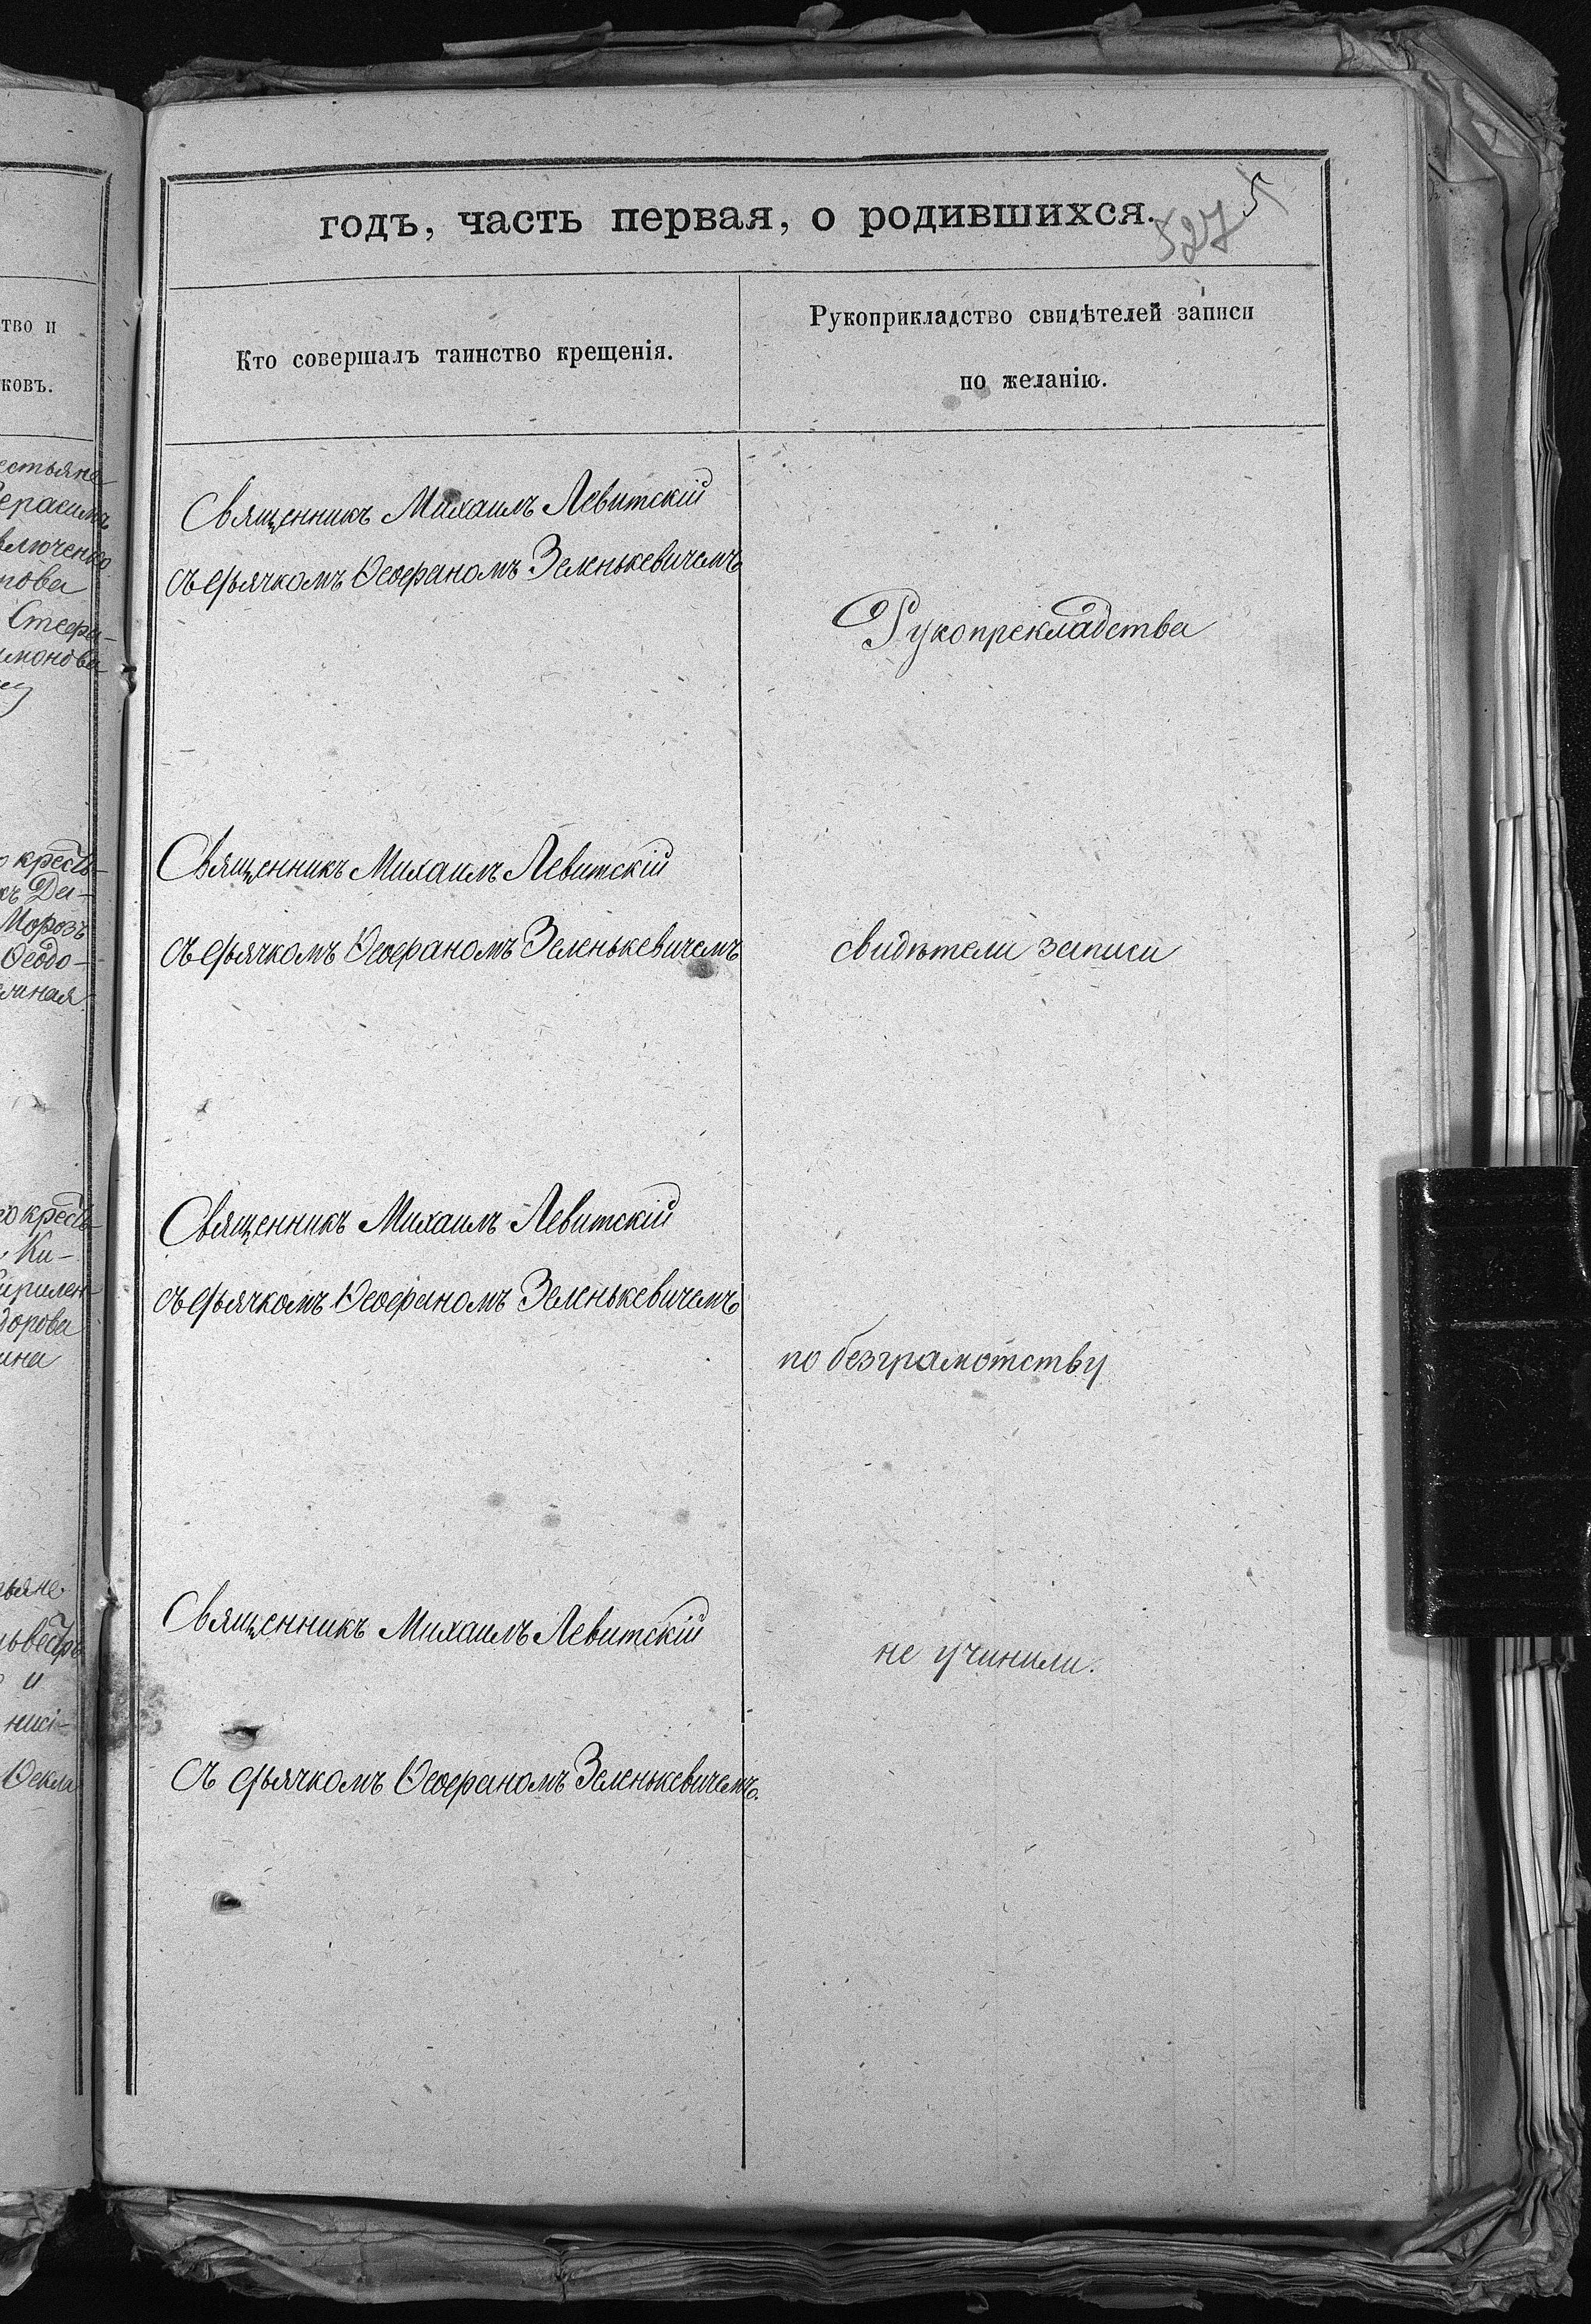 годъ, часть первая, о родившихся.
527
5
тво и
ковъ.
Кто совершалъ таинство крещенія.
Рукоприкладство свидѣтелей записи
по желанію.
Священникъ Михаилъ Левитскій
съ дьячкомъ Ѳеофаномъ Зенькевичемъ
Рукопрекладства
Священникъ Михаилъ Левитскій
съ дьячкомъ Ѳеофаномъ Зеленькевичемъ
свидѣтели записи
Священникъ Михаилъ Левитскій
съ дьячкомъ Ѳеофаномъ Зеленькевичемъ
по безграмотству
Священникъ Михаилъ Левитскій
не учинили.
съ дьячкомъ Ѳеофаномъ Зеленькевичемъ.
естьяне
Герасимъ
нова
Стефа-
имонова
крестъ-
Морозъ
Ѳеодо-
Ки-
дорова
и
Ѳекла